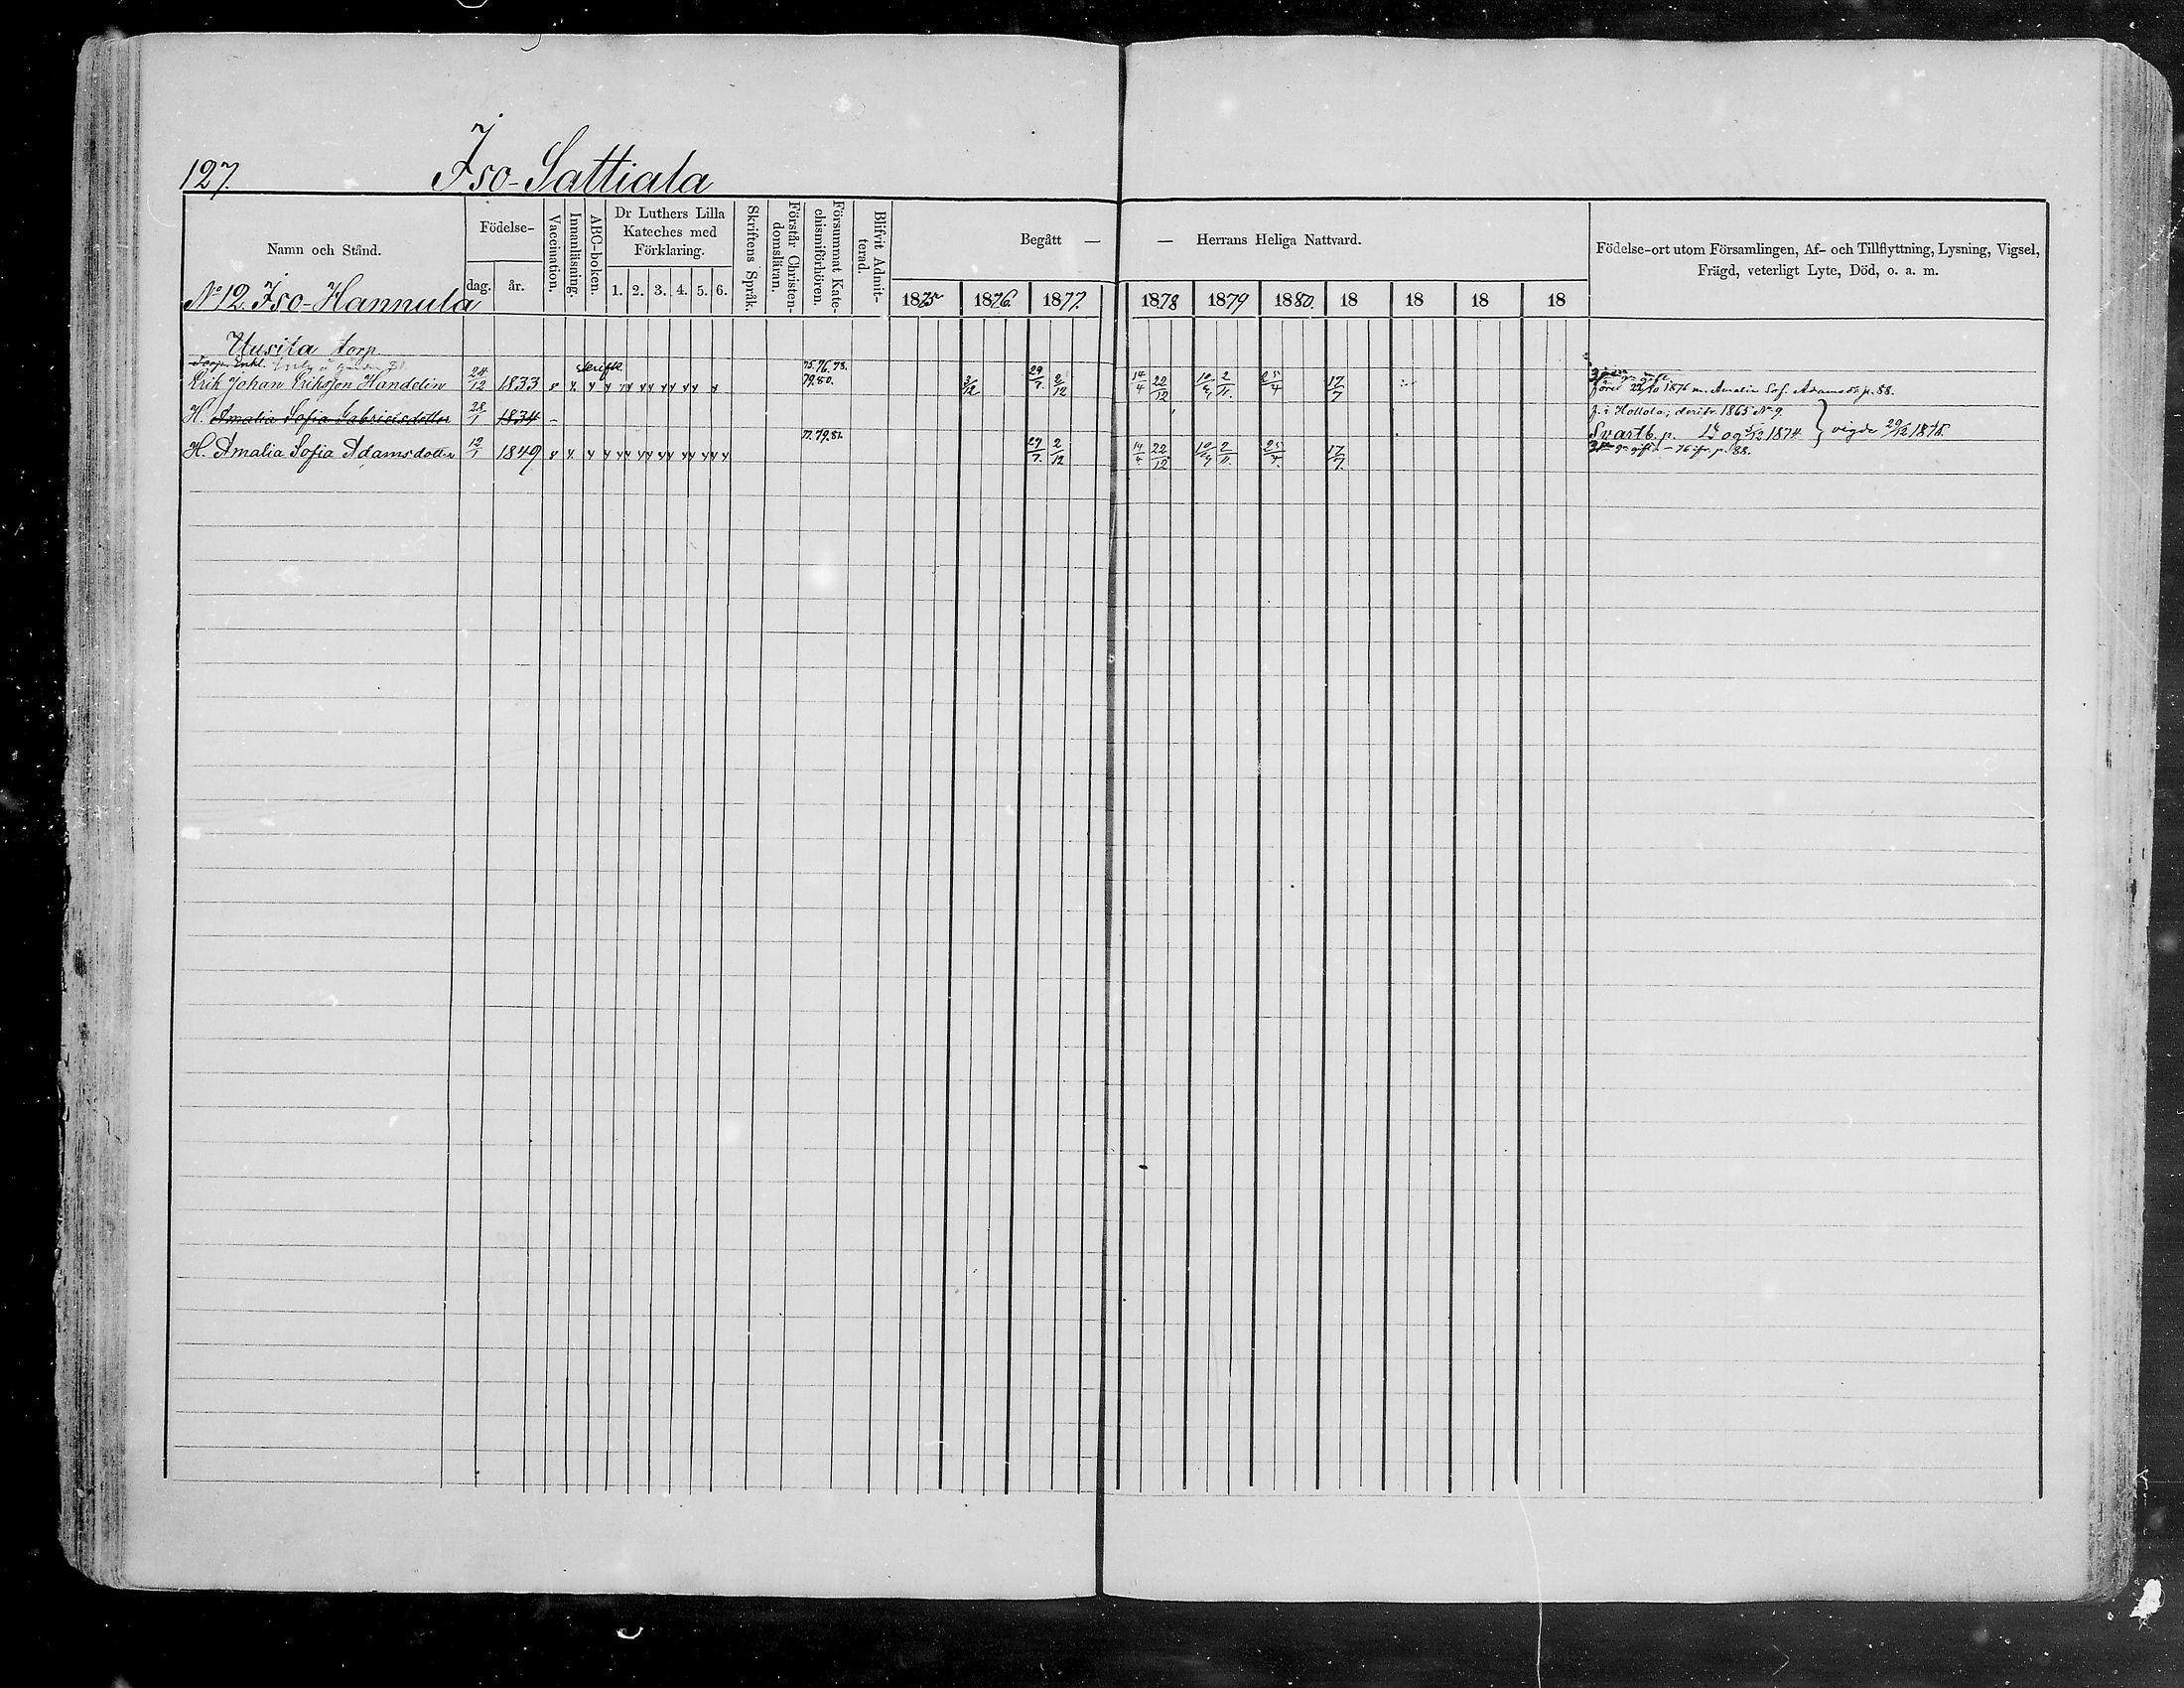 127.
Iso-Sattiala
Namn och Stånd.
Födelse-
dag.
år.
Vaccination.
Innanläsning.
ABC-boken.
Dr Luthers Lilla
Kateches med
Förklaring.
1. 2. 3. 4. 5. 6.
Skriftens Språk.
Förstår Christen-
domsläran.
Försummat Kate-
chismiförhören.
Blifvit Admit-
terad.
Begått — — Herrans Heliga Nattvard.
1875 1876. 1877. 1878 1879 1880. 18 18 18 18
Födelse-ort utom Församlingen, Af- och Tillflyttning, Lysning, Vigsel,
Frägd, veterligt Lyte, Död, o. a. m.
No 12. Iso-Hannula
Uusita torp.
Enkl.
75. 76. 78.
Erik Johan Eriksson Handelin 24/12 1833 79. 80. 3/12 29/7. 2/12 14/4 22/12 2/11. 25/4 17/7
22/10 1876 m. Amalia Sof. Adamsdr p. 88.
H. Amalia Sofia Gabrielsdotter 28/1 1834 –
f. i Hollola; derifr. 1865 No 9.
Svartb. p. 1874. vigde 29/12 1875.
77. 79. 81.
H. Amalia Sofia Adamsdotter 12/1 1849 29/7. 2/12 14/4 22/12 2/11. 25/4. 17/7.
gift – 76 ifr. p. 88.